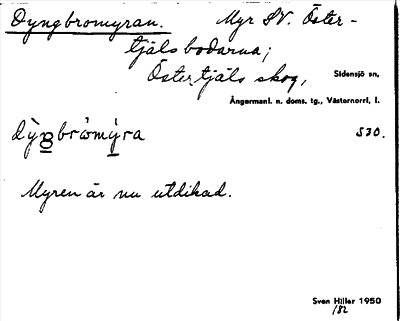 Dyngbromyran. Myr SV. Öster-
tjälsbodarna;
Östertjäls skog, Sidensjö sn.
Ångermanl. n. doms. tg., Västernorrl, l.
530.
Myren är nu utdikad.
Sven Hiller 1950
/82